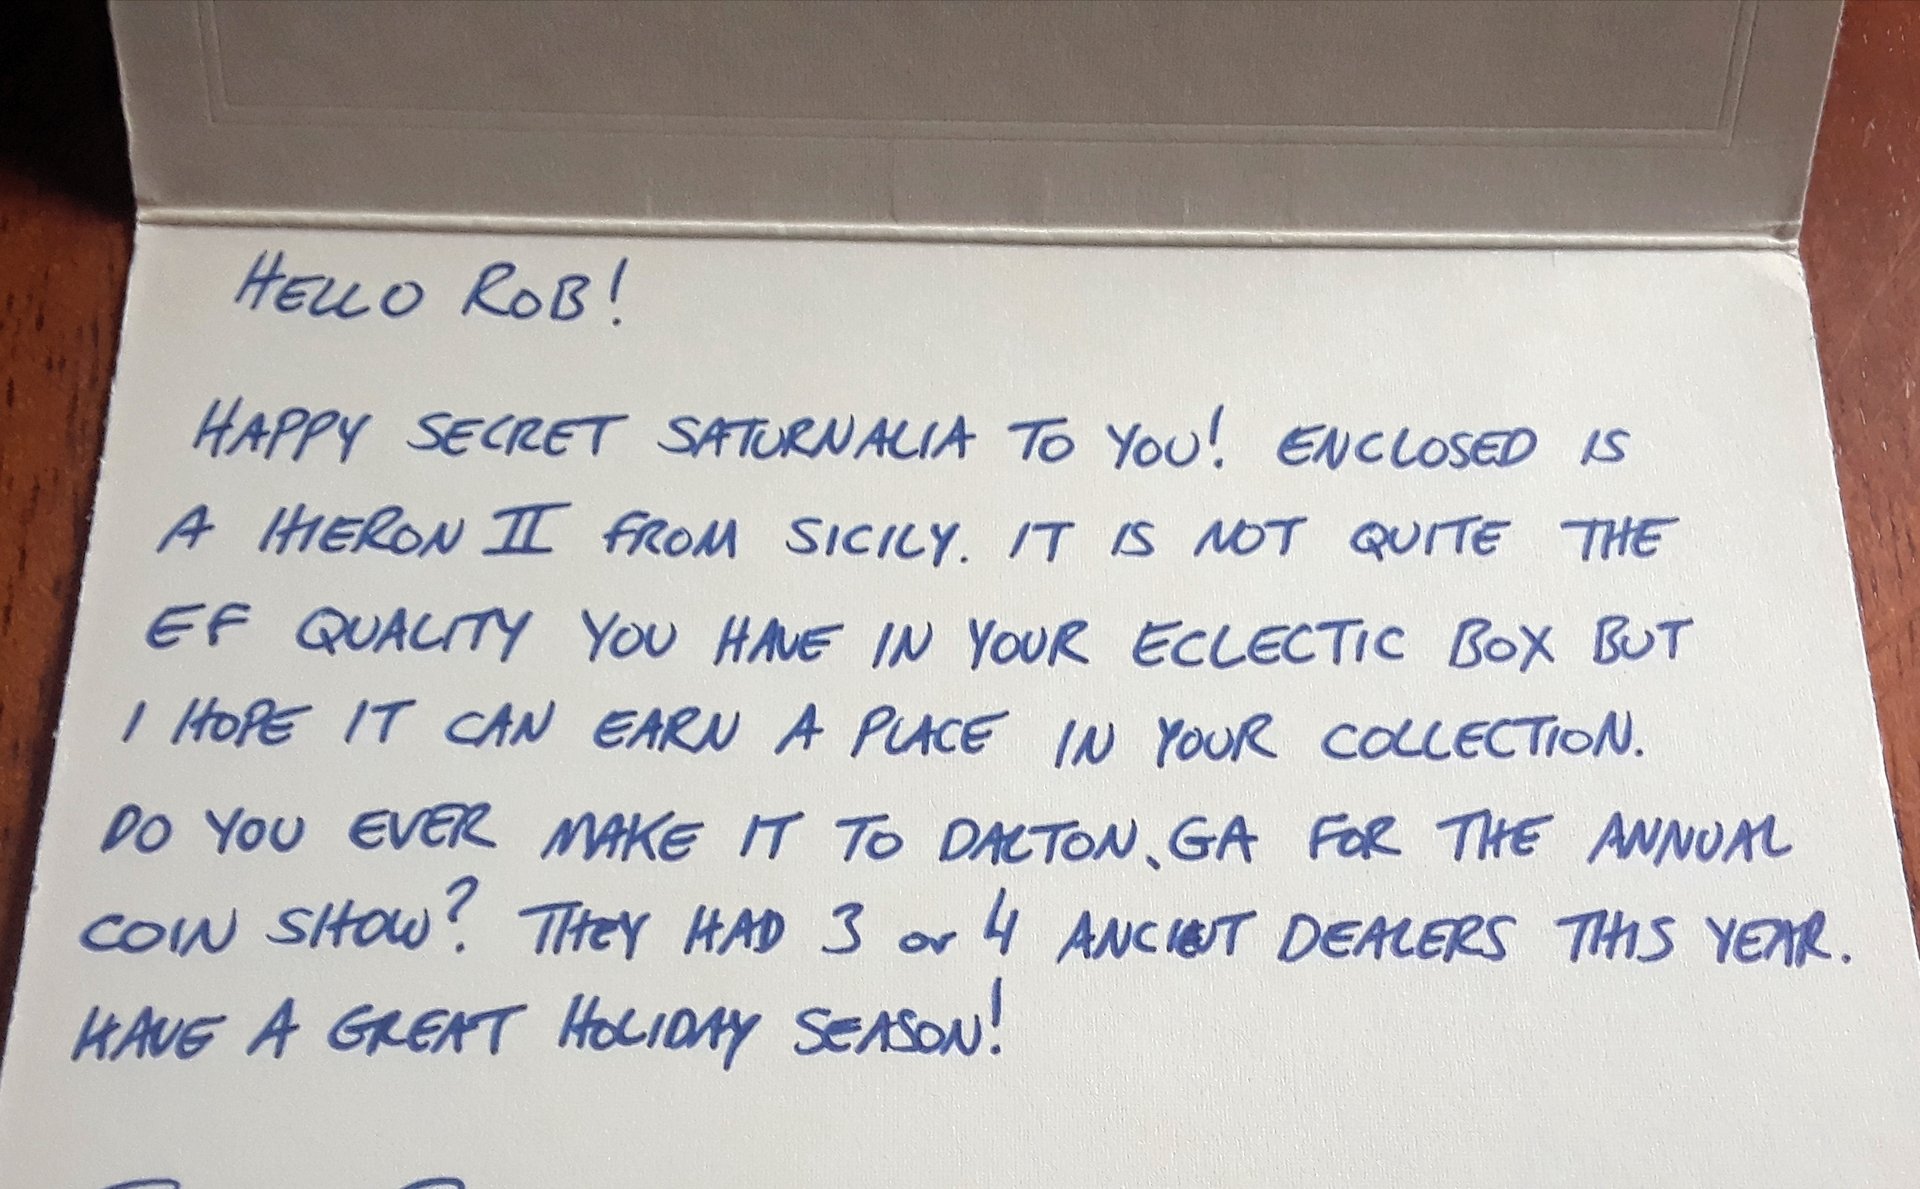 HELLO ROB!
HAPPY SECRET SATURNALIA TO YOU! ENCLOSED IS
A HIERON II FROM SICILY. IT IS NOT QUITE THE
EF QUALITY YOU HAVE IN YOUR ECLECTIC BOX BUT
I HOPE IT CAN EARN A PLACE IN YOUR COLLECTION.
DO YOU EVER MAKE IT TO DALTON, GA FOR THE ANNUAL
COIN SHOW? THEY HAD 3 or 4 ANCIENT DEALERS THIS YEAR.
HAVE A GREAT HOLIDAY SEASON!